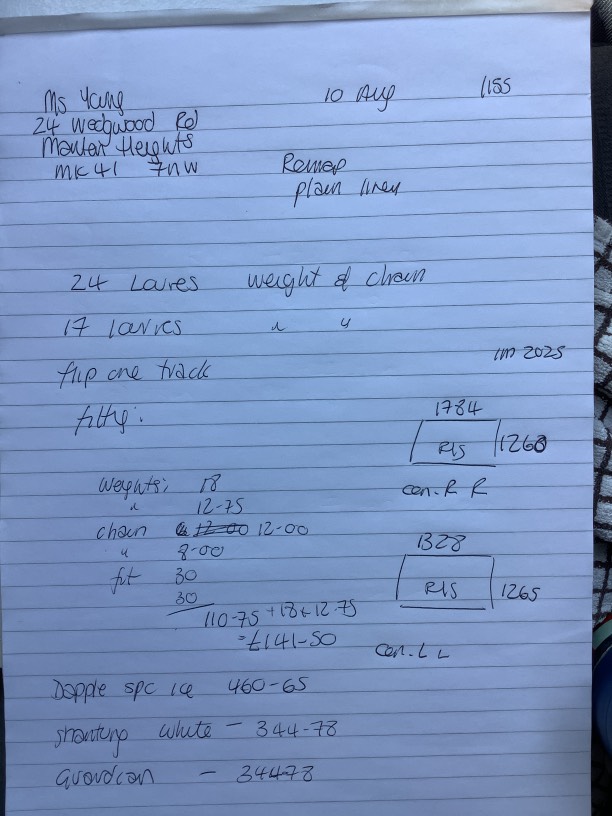 Ms Yang 10 Aug 1155
24 Wedgwood Rd
Manton Heights
MK41 7NW Remap
plain linen
24 Louves weight & chain
17 louvres " "
1m 2025
flip one track
fitting:
1784
RLS 1260
Weights: 18
con. R R
" 12-75
chain 12-00
" 8-00
1328
fit 30
RLS 1265
30
110-75 + 18 + 12-75
=£141-50
con. L L
Dapple spc ice 460-65
shantung white - 344-78
- 344-78